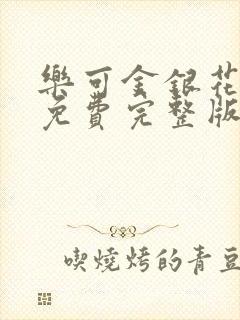 樂可金銀花
免費完整版
喫燒烤的青豆